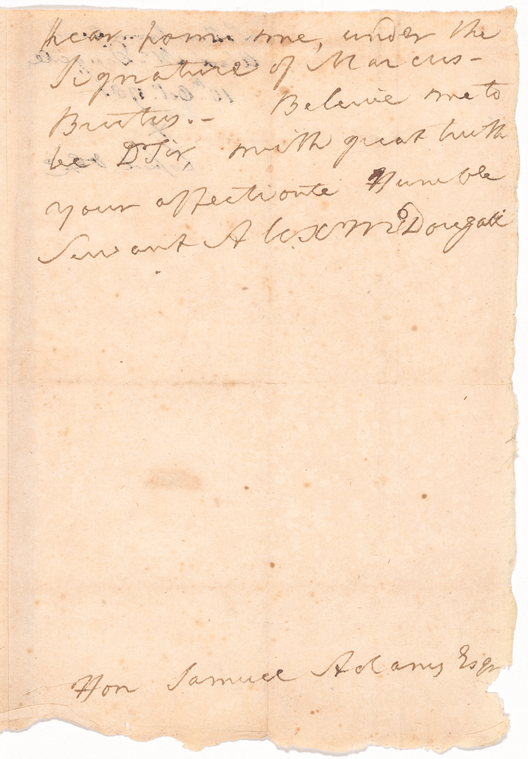 hear from me, under the
Signature of Marcus-
Brutus.- Beleive me to
be Dr Sir, with great truth
your affectionte Humble
Servant Alexr McDougall
Hon Samuel Adams Esqr